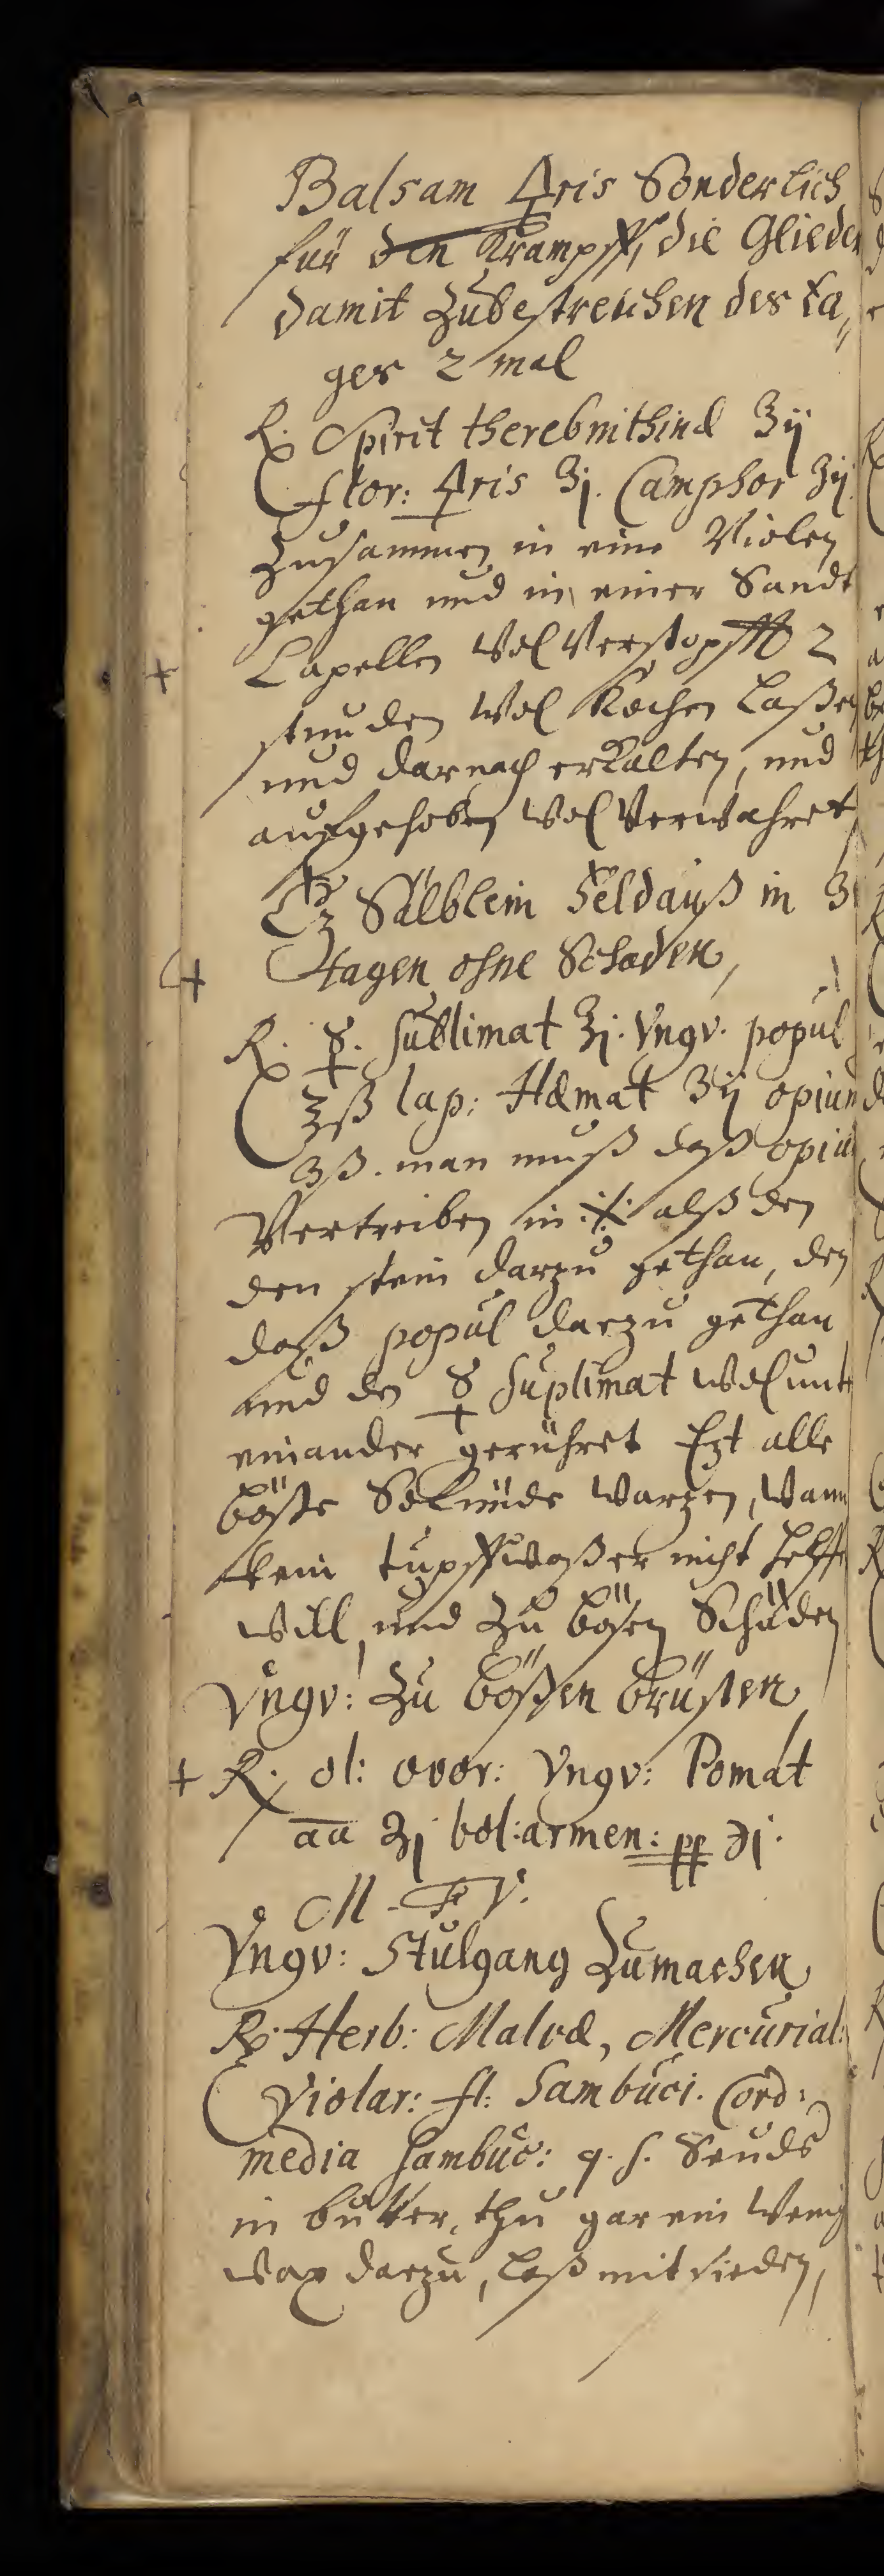 Balsam 🜍ris Sonderlich
für den Krampff, die Glieder
damit Zubestreichen des ta„
ges 2 mal
℞. Spirit therebnithinæ ʒij
flor: 🜍ris ʒj. Camphor ʒij.
Zusammen in eine Violen
gethan und in einer Sandt
Capellen Wol Verstopfft 2
stunden Wol Kochen Laßen
und darnach erkalten, und
aufgehoben Wol Verwahret
Sälblein Feldauß in 3
tagen ohne Schaden,
℞. ☿. Sublimat ʒj. Vngv. popul
℥ß lap: Hæmat ʒij opium
ʒß. man muß daß opiu
Vertreiben in alß den
den stein darzu gethan, den
daß popul darzu gethan
und den ☿ Suplimat Wol unt
einander gerühret Ezt alle
böße warzen, wann
kein tupffwaßer nicht helffe
will, und Zu bösen Schäden
Vngv: Zu bößen brüsten
+ ℞. ol: ovor: Vngv: Pomat
āā ʒj bol: armen: pp ℈j.
M. F. V.
Vngv: Stulgang Zumachen
℞. Herb: Malvæ, Mercurial:
Violar: fl: Sambuci. Cord:
media Sambuc: q. s. Seuds
in butter, thu gar ein Wenig
wax darzu, laß mit sieden,